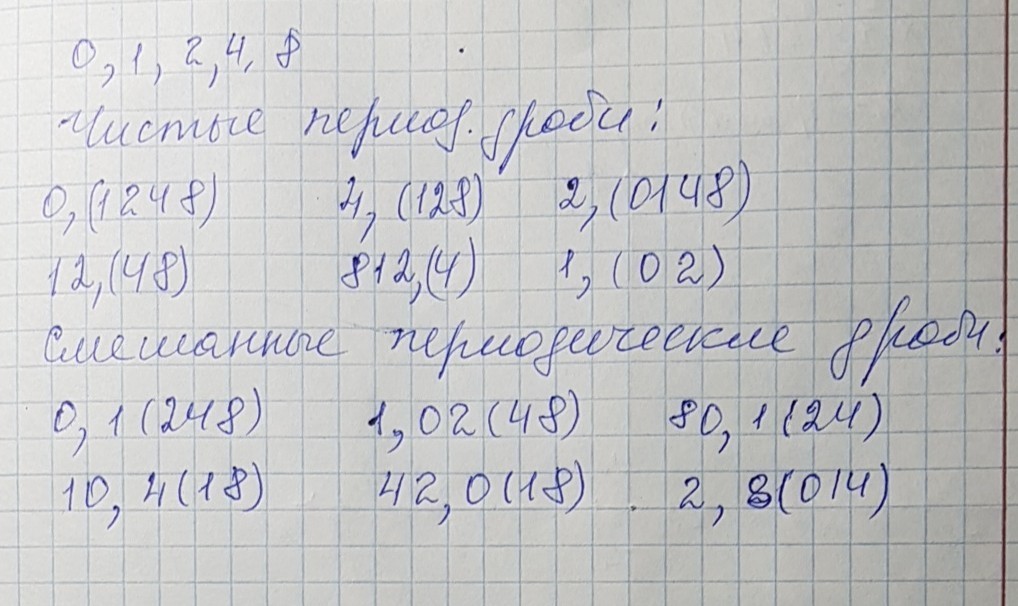 0, 1, 2, 4, 8
Чистые период. дроби:
0,(1248) 4,(128) 2,(0148)
12,(48) 812,(4) 1,(02)
Смешанные периодические дроби:
0,1(248) 1,02(48) 80,1(24)
10,4(18) 42,0(18) 2,8(014)